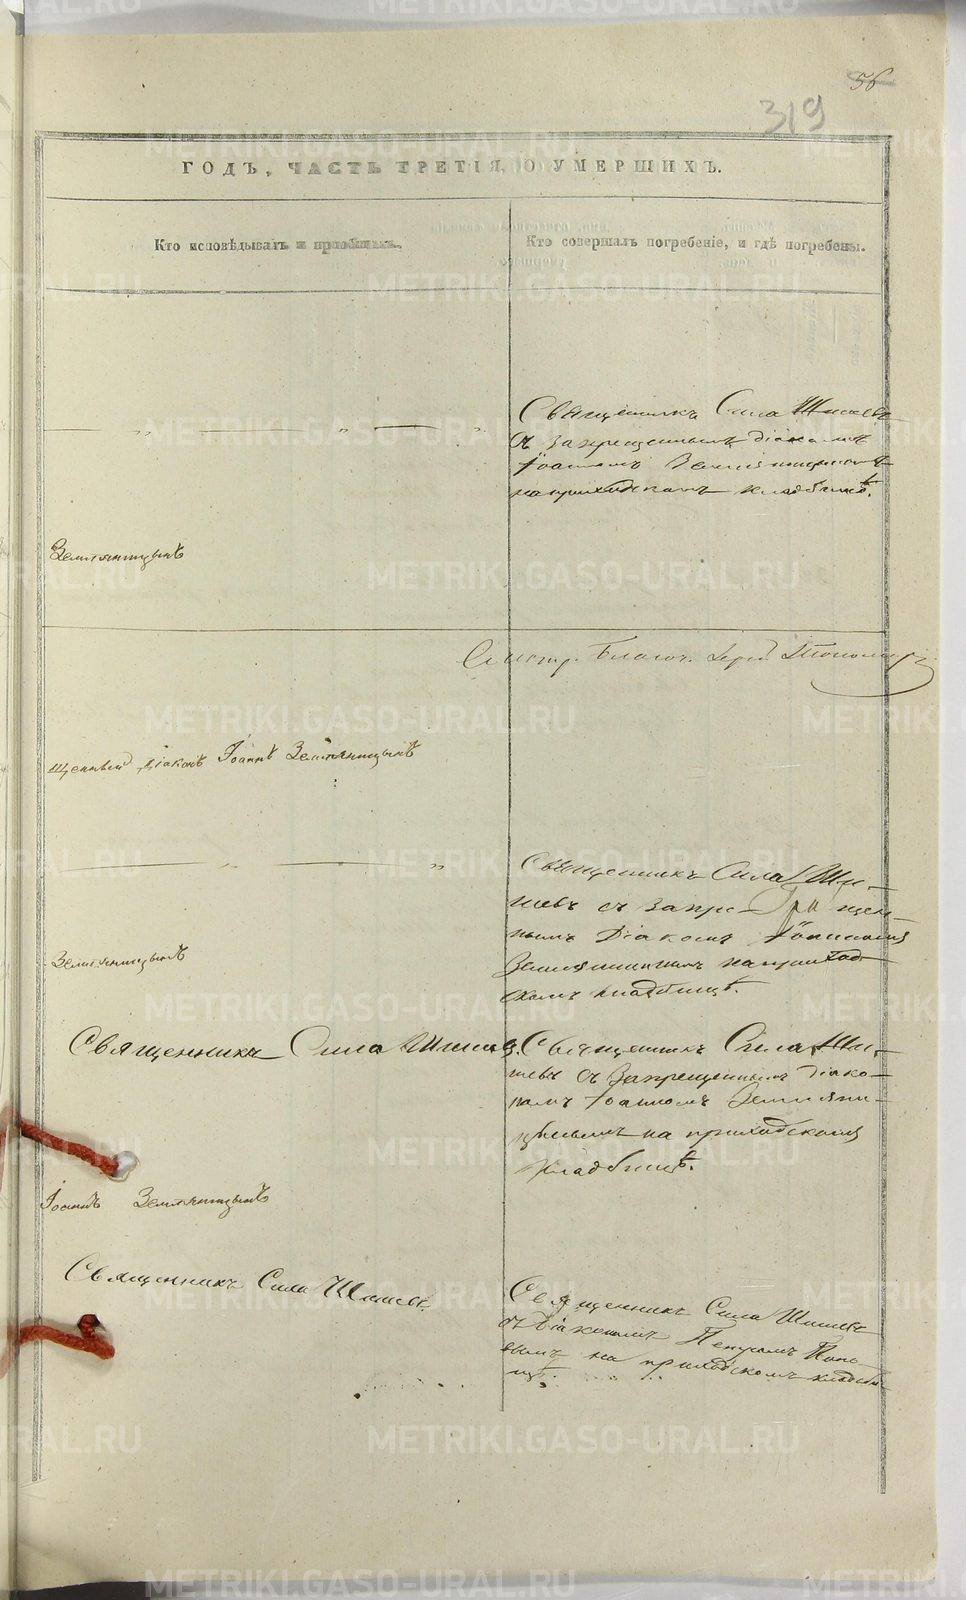 56
319
ГОДЪ, ЧАСТЬ ТРЕТІЯ, О УМЕРШИХЪ.
Кто исповѣдывалъ и пріобщалъ.
Кто совершалъ погребеніе, и гдѣ погребены.
Священникъ Сила
съ запрещеннымъ діакономъ
Іоанномъ Земляницынымъ
на приходскомъ кладбищѣ.
Земляницынъ
щенный діаконъ Іоаннъ Земляницынъ
Священникъ Сила Ши-
шевъ съ запре- щен-
нымъ Діакономъ Іоанномъ
на приход-
скомъ кладбищѣ.
Земляницынъ
Священникъ Сила Шишевъ.
Священникъ Сила Ши-
шевъ съ Запрещеннымъ Діако-
номъ Іоанномъ Земляни-
цынымъ на приходскомъ
кладбищѣ.
Іоаннъ Земляницынъ
Священникъ Сила Шишевъ.
Священникъ Сила Шишевъ
съ Діакономъ Петромъ Попо-
вымъ на приходскомъ кладби-
щѣ.
METRIKI.GASO-URAL.RU